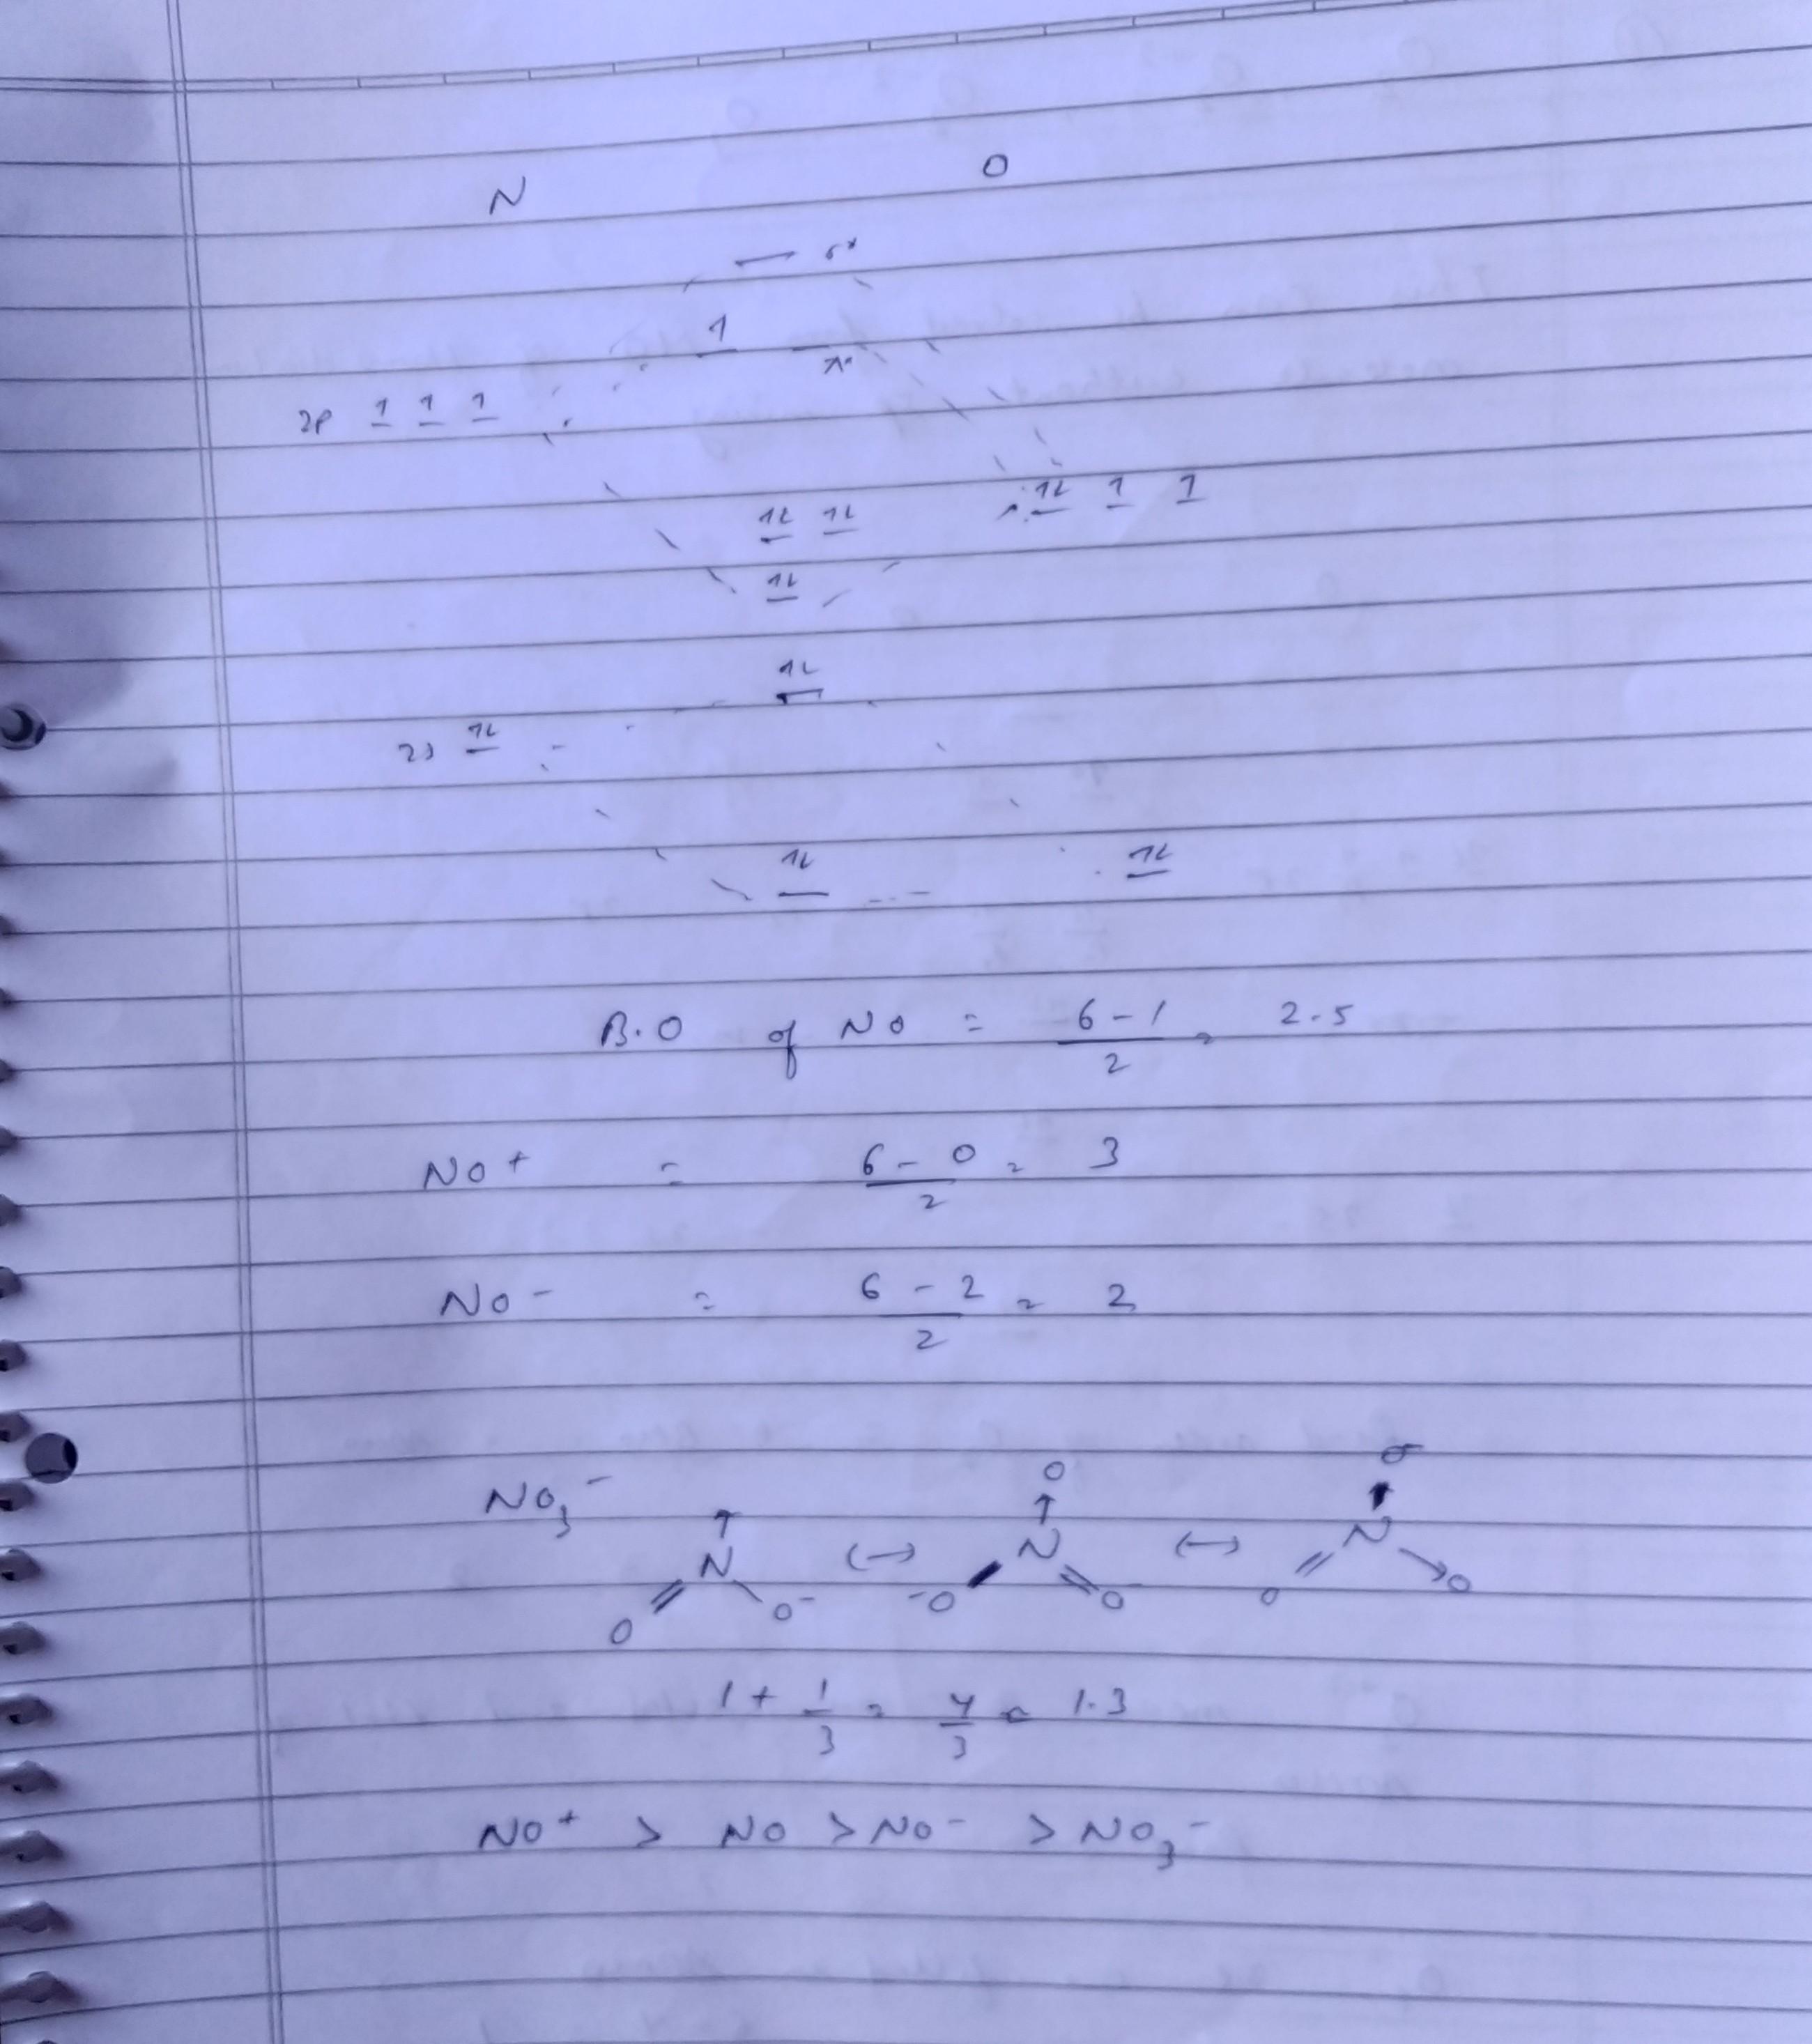 N O
— σ*
1 — π*
2p 1 1 1
1L 1 1
1L 1L
1L
1L
2s 1L
1L 1L
B.O of NO = 6 - 1 / 2 = 2.5
NO+ = 6 - 0 / 2 = 3
NO- = 6 - 2 / 2 = 2
NO3-
O O-
↑ ↑ ↑
N ↔ N ↔ N
O O- -O O O O
1 + 1/3 = 4/3 = 1.3
NO+ > NO > NO- > NO3-